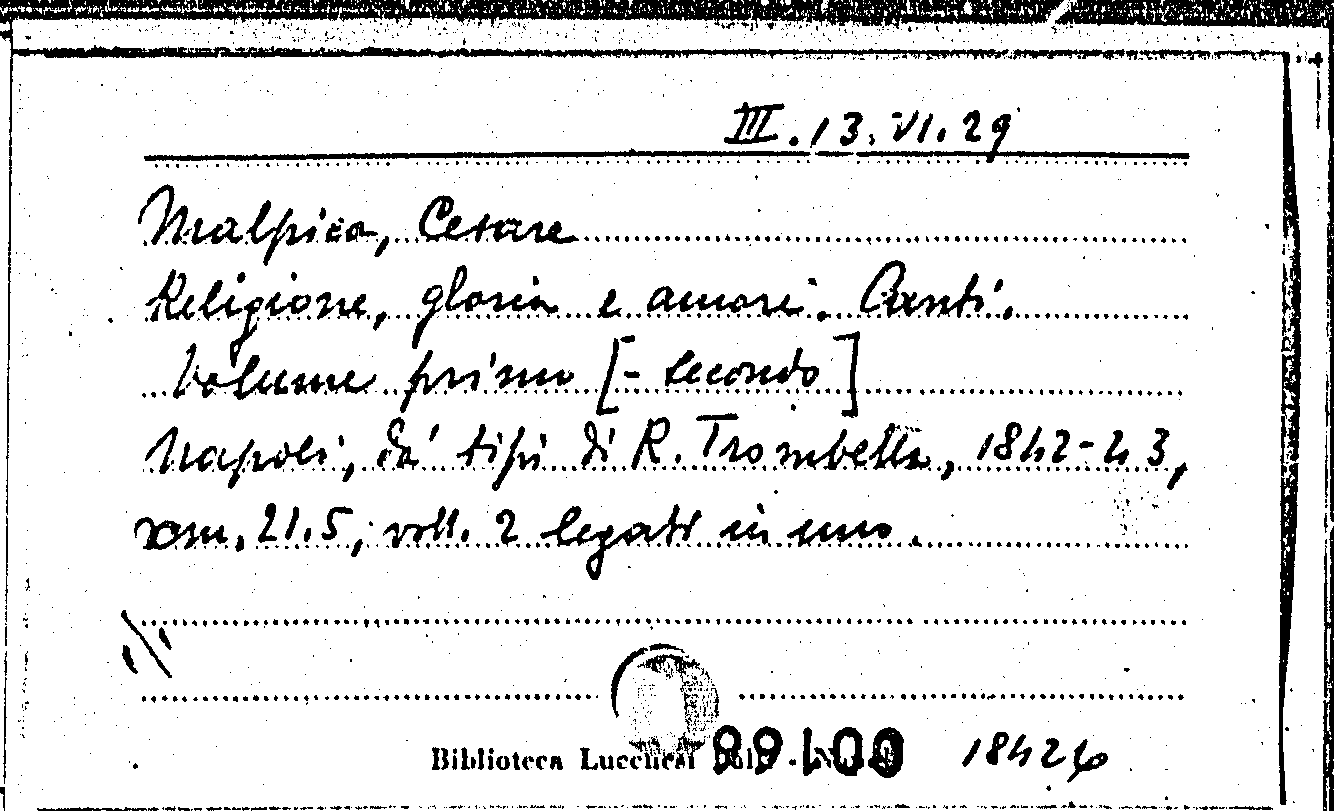 III.13.VI.29
Malpica, Cesare
Religione, gloria e amore. Canti.
Volume primo [- secondo]
Napoli, da' tipi di R. Trombetta, 1842-43,
cm. 21.5, voll. 2 legati in uno.
Biblioteca Lucchesi